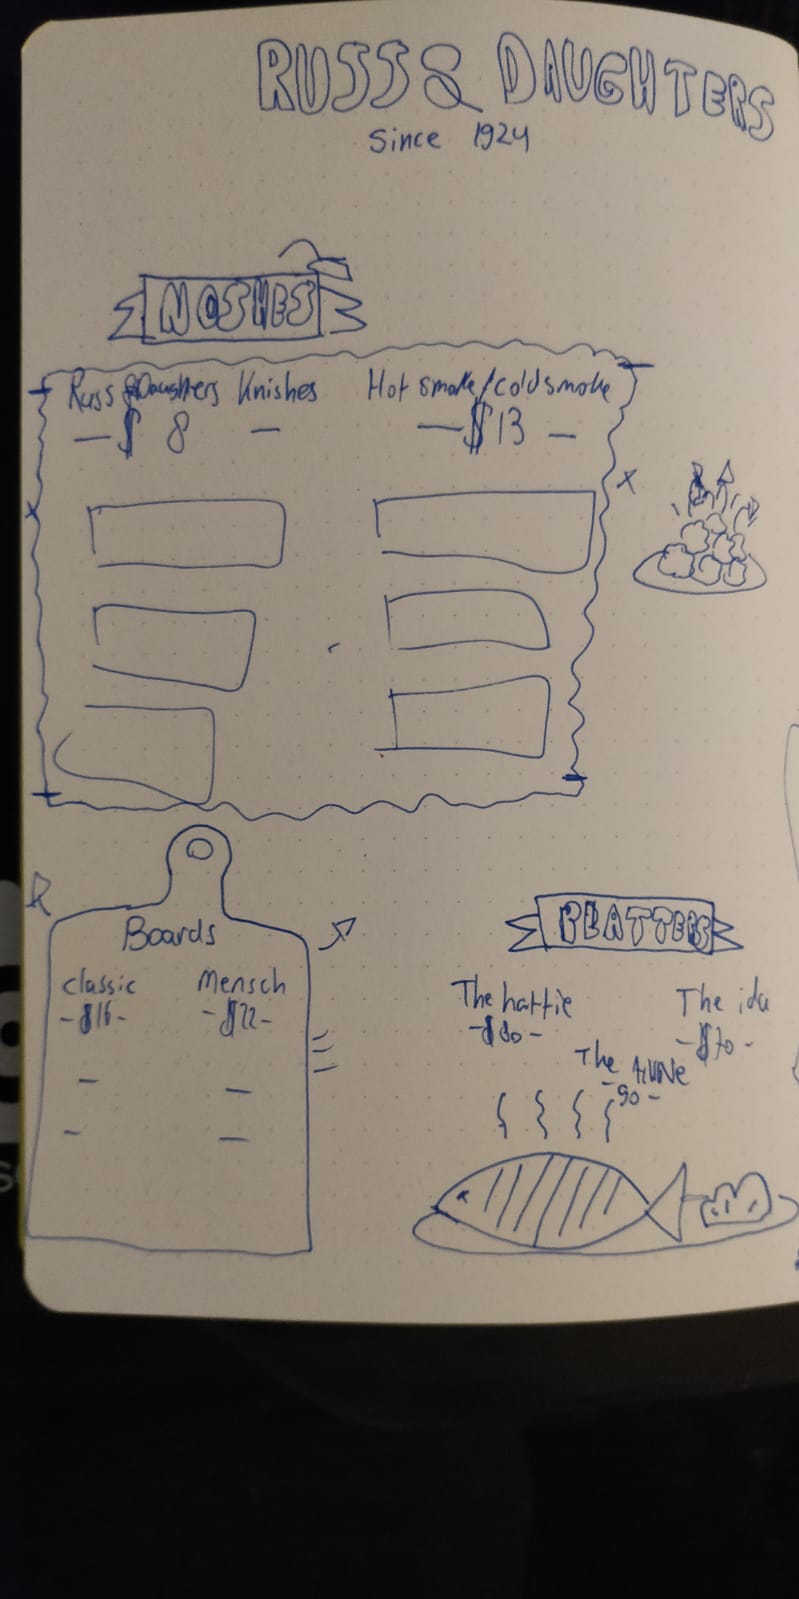 RUSS & DAUGHTERS
Since 1924
NOSHES
Russ & Daughters Knishes
- $ 8 -
Hot smoke/cold smoke
- $ 13 -
Boards
classic
- $16 -
Mensch
- $22 -
PLATTERS
The hattie
The ida
- $70 -
The
- 90 -